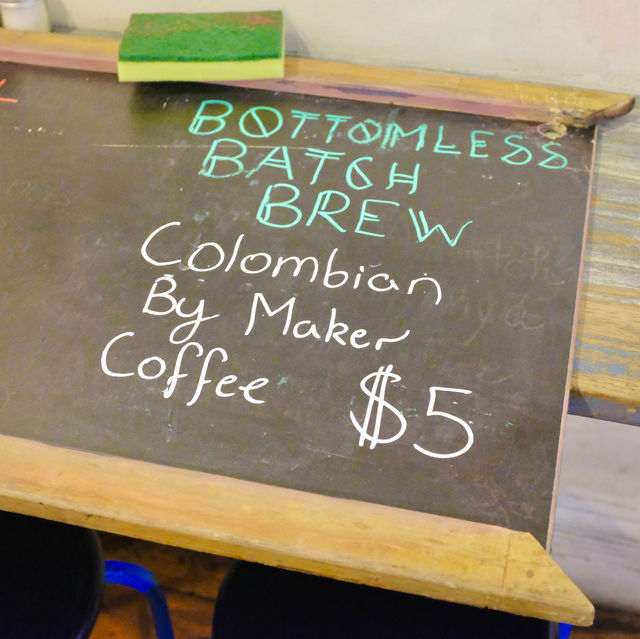 BOTTOMLESS
BATCH
BREW
Colombian
By Maker
Coffee $5